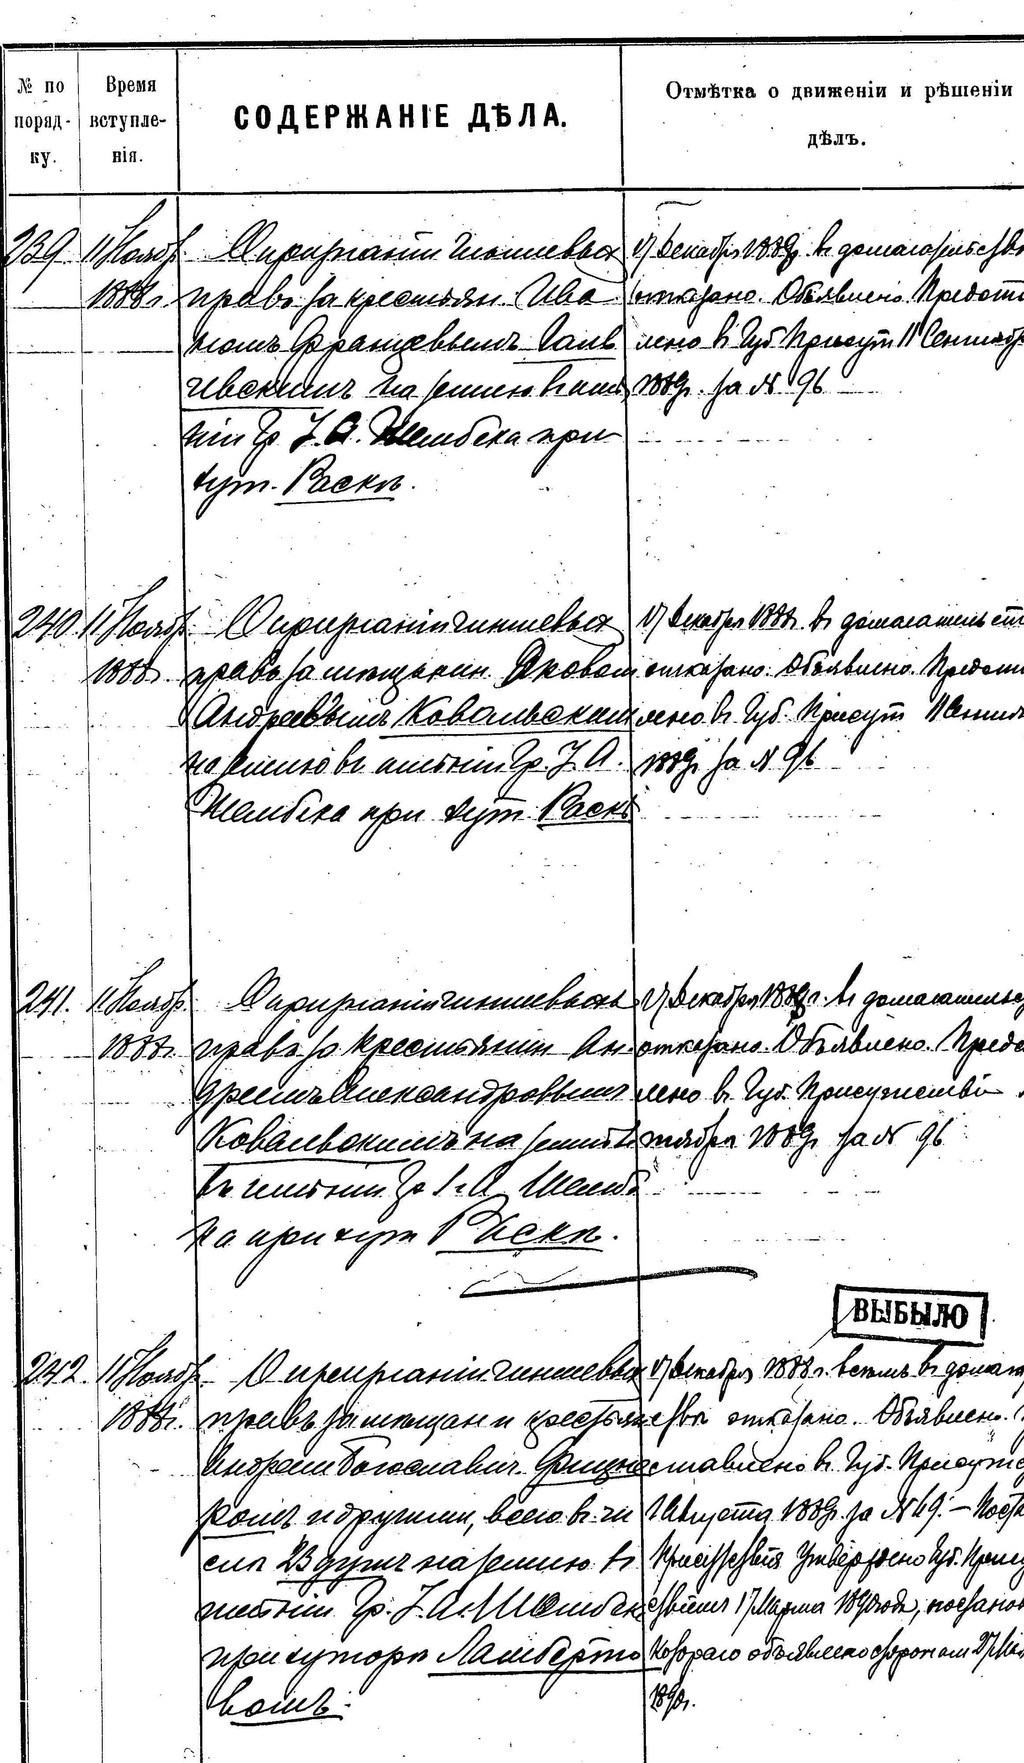 № по поряд- ку.
Время вступле- нія.
СОДЕРЖАНІЕ ДѢЛА.
Отмѣтка о движеніи и рѣшеніи дѣлъ.
239
11 Ноябр.
1888 г.
О признаніи чиншевых
правъ за крестьян. Ива
номъ Францевымъ
на землю в имѣ
ніи Гр. І. А. Шембека при
хут. Раскъ.
17 Декабр 1889. в домогательств
отказано. Объявлено. Предста
лено в Губ Присут 11 Сентябр
1889. за № 96
240
11 Ноябр.
1888.
О признаніи чиншевых
правъ за мещанин. Яковом
Андреевымъ Ковальским
на землю въ имѣніи Гр. І. А.
Шембека при хут. Раскъ
17 Декабр 1888. в домогательст
отказано. Объявлено. Предста
лено в Губ. Присут
1889. за № 96
241.
11 Ноябр.
1888.
О признаніи чиншевыхъ
правъ за крестьянин Ан
дреемъ Александровымъ
Ковалевскимъ на землю
въ имѣніи Гр І. А. Шембе
ка при хут Раскъ.
17 Декабря 1889 г. въ домогательс
отказано. Объявлено. Предс
лено в Губ. Присутствіе
тября 1889 за № 96
ВЫБЫЛО
242.
11 Ноябр.
1888 г.
О признаніи чиншевы
правъ за мещан и крестьян
Андреем Богославич.
комъ и другими, всего в чи
слѣ 23 душъ на землю въ
имѣніи Гр. І. А. Шембек
при хуторѣ Ламберто
вомъ.
17 Декабря 1888 г. всемъ въ домог
ствѣ отказано. Объявлено.
ставлено въ Губ. Присутс
1 Августа 1889 за № 69. — Поста
Утверждено Губ. Прису
ствіемъ 17 Марта 1890 года, постанов
котораго объявлено сторонам 27
1890 г.